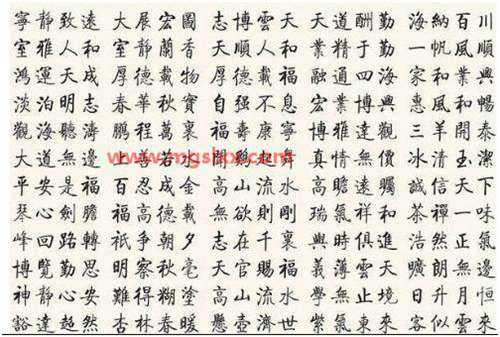 寧靜致遠 大展宏圖 志博雲天 天道酬勤 海納百川
室雅人和 室靜蘭香 天順人和 業精于勤 一帆風順
鴻運天成 厚德載物 厚德載福 融通四海 家和業興
淡泊明志 春華秋實 自强不息 宏業博興 惠風和暢
觀海聽濤 鵬程萬裏 福壽康寧 博雅達觀 三羊開泰
大道無邊 上善若水 聞鷄起舞 真情無價 冰清玉潔
www.mgshx.com
平安是福 百忍成金 高山流水 高瞻遠矚 誠信天下
琴心劍膽 福高德載 無欲則剛 瑞氣祥和 茶禪一味
峰回路轉 祇争朝夕 志在千裏 與時俱進 浩然正氣
博覽勤思 明察秋毫 天官賜福 義薄雲天 曠朗無邊
神静心安 難得糊塗 高山流水 學無止境 日升月恒
豁達超然 杏林春暖 懸壺濟世 紫氣東來 客似雲來